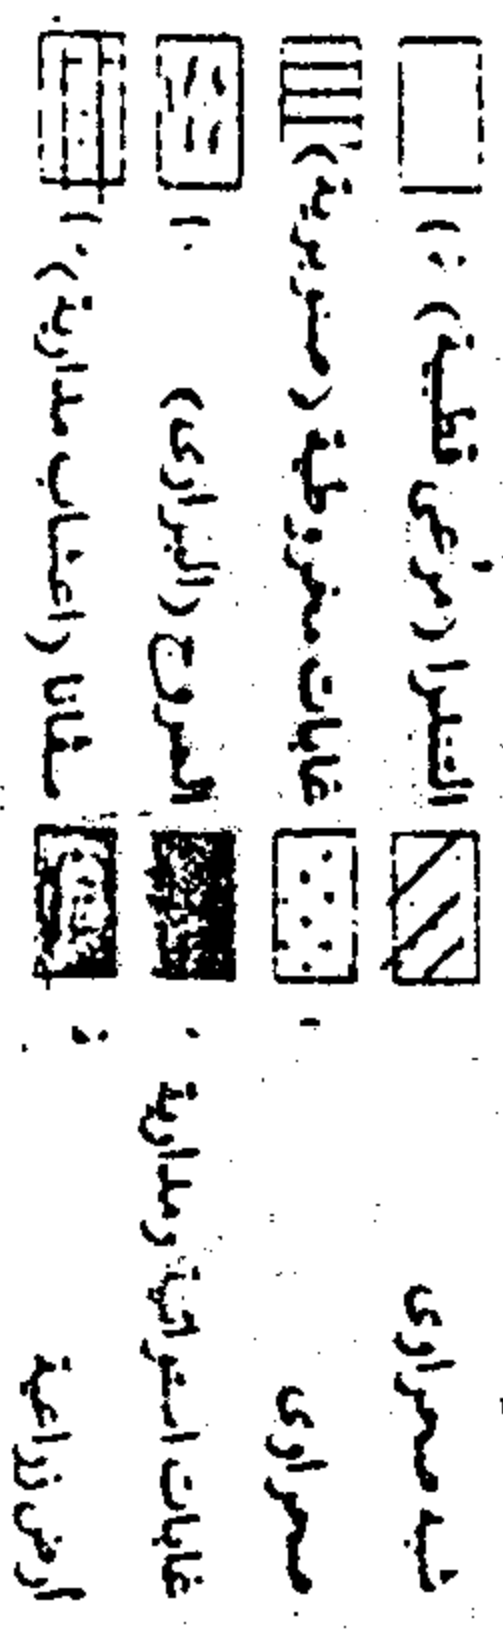 التندرا (مرعى قطبية)
غابات مخروطية (صنوبرية)
المروج (البرارى)
سفانا (اعشاب مدارية)
شبه صحراوى
صحراوى
غابات استوائية ومدارية
أرض زراعية